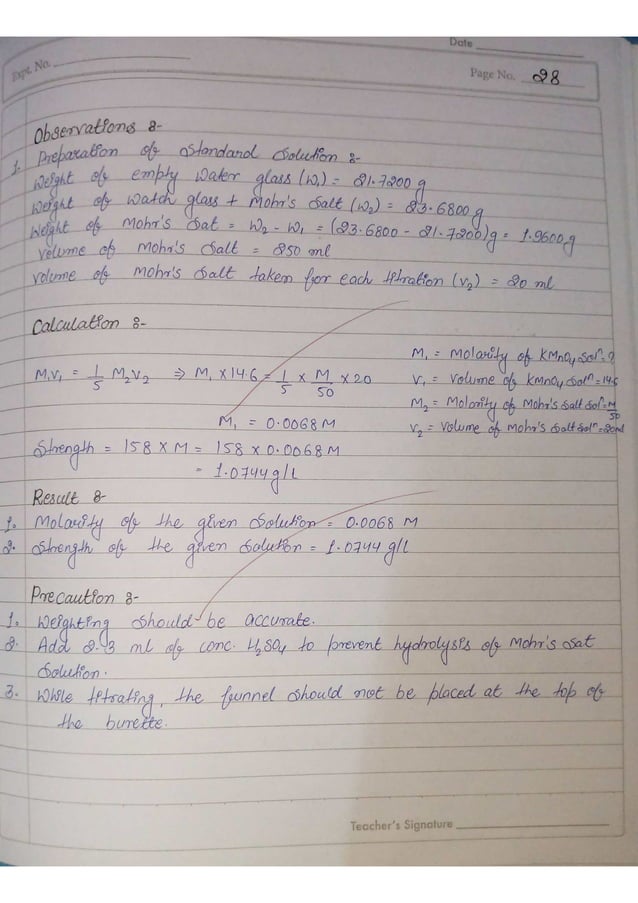 Date
Expt. No.
Page No. 28
Observations :-
1. Preparation of Standard Solution :-
Weight of empty Water glass (W₁) = 21.7200 g
Weight of watch glass + Mohr's Salt (W₂) = 23.6800 g
Weight of Mohr's Sat = W₂ - W₁ = (23.6800 - 21.7200)g = 1.9600g
Volume of Mohr's Salt = 250 ml
Volume of Mohr's Salt taken for each titration (V₂) = 20 ml
Calculation :-
M₁V₁ = 1/5 M₂V₂ ⇒ M₁ X 14.6 = 1/5 X M/50 X 20
M₁ = 0.0068 M
Strength = 158 X M = 158 X 0.0068 M
= 1.0744 g/L
M₁ = Molarity of KMnO₄ Solⁿ = ?
V₁ = Volume of KMnO₄ Solⁿ = 14.6
M₂ = Molarity of Mohr's Salt Solⁿ = M/50
V₂ = Volume of Mohr's Salt Solⁿ = 20ml
Result :-
1. Molarity of the given Solution = 0.0068 M
2. Strength of the given Solution = 1.0744 g/L
Precaution :-
1. Weighting should be accurate.
2. Add 2-3 ml of conc. H₂SO₄ to prevent hydrolysis of Mohr's Sat
Solution.
3. While titrating, the funnel should not be placed at the top of
the burette.
Teacher's Signature